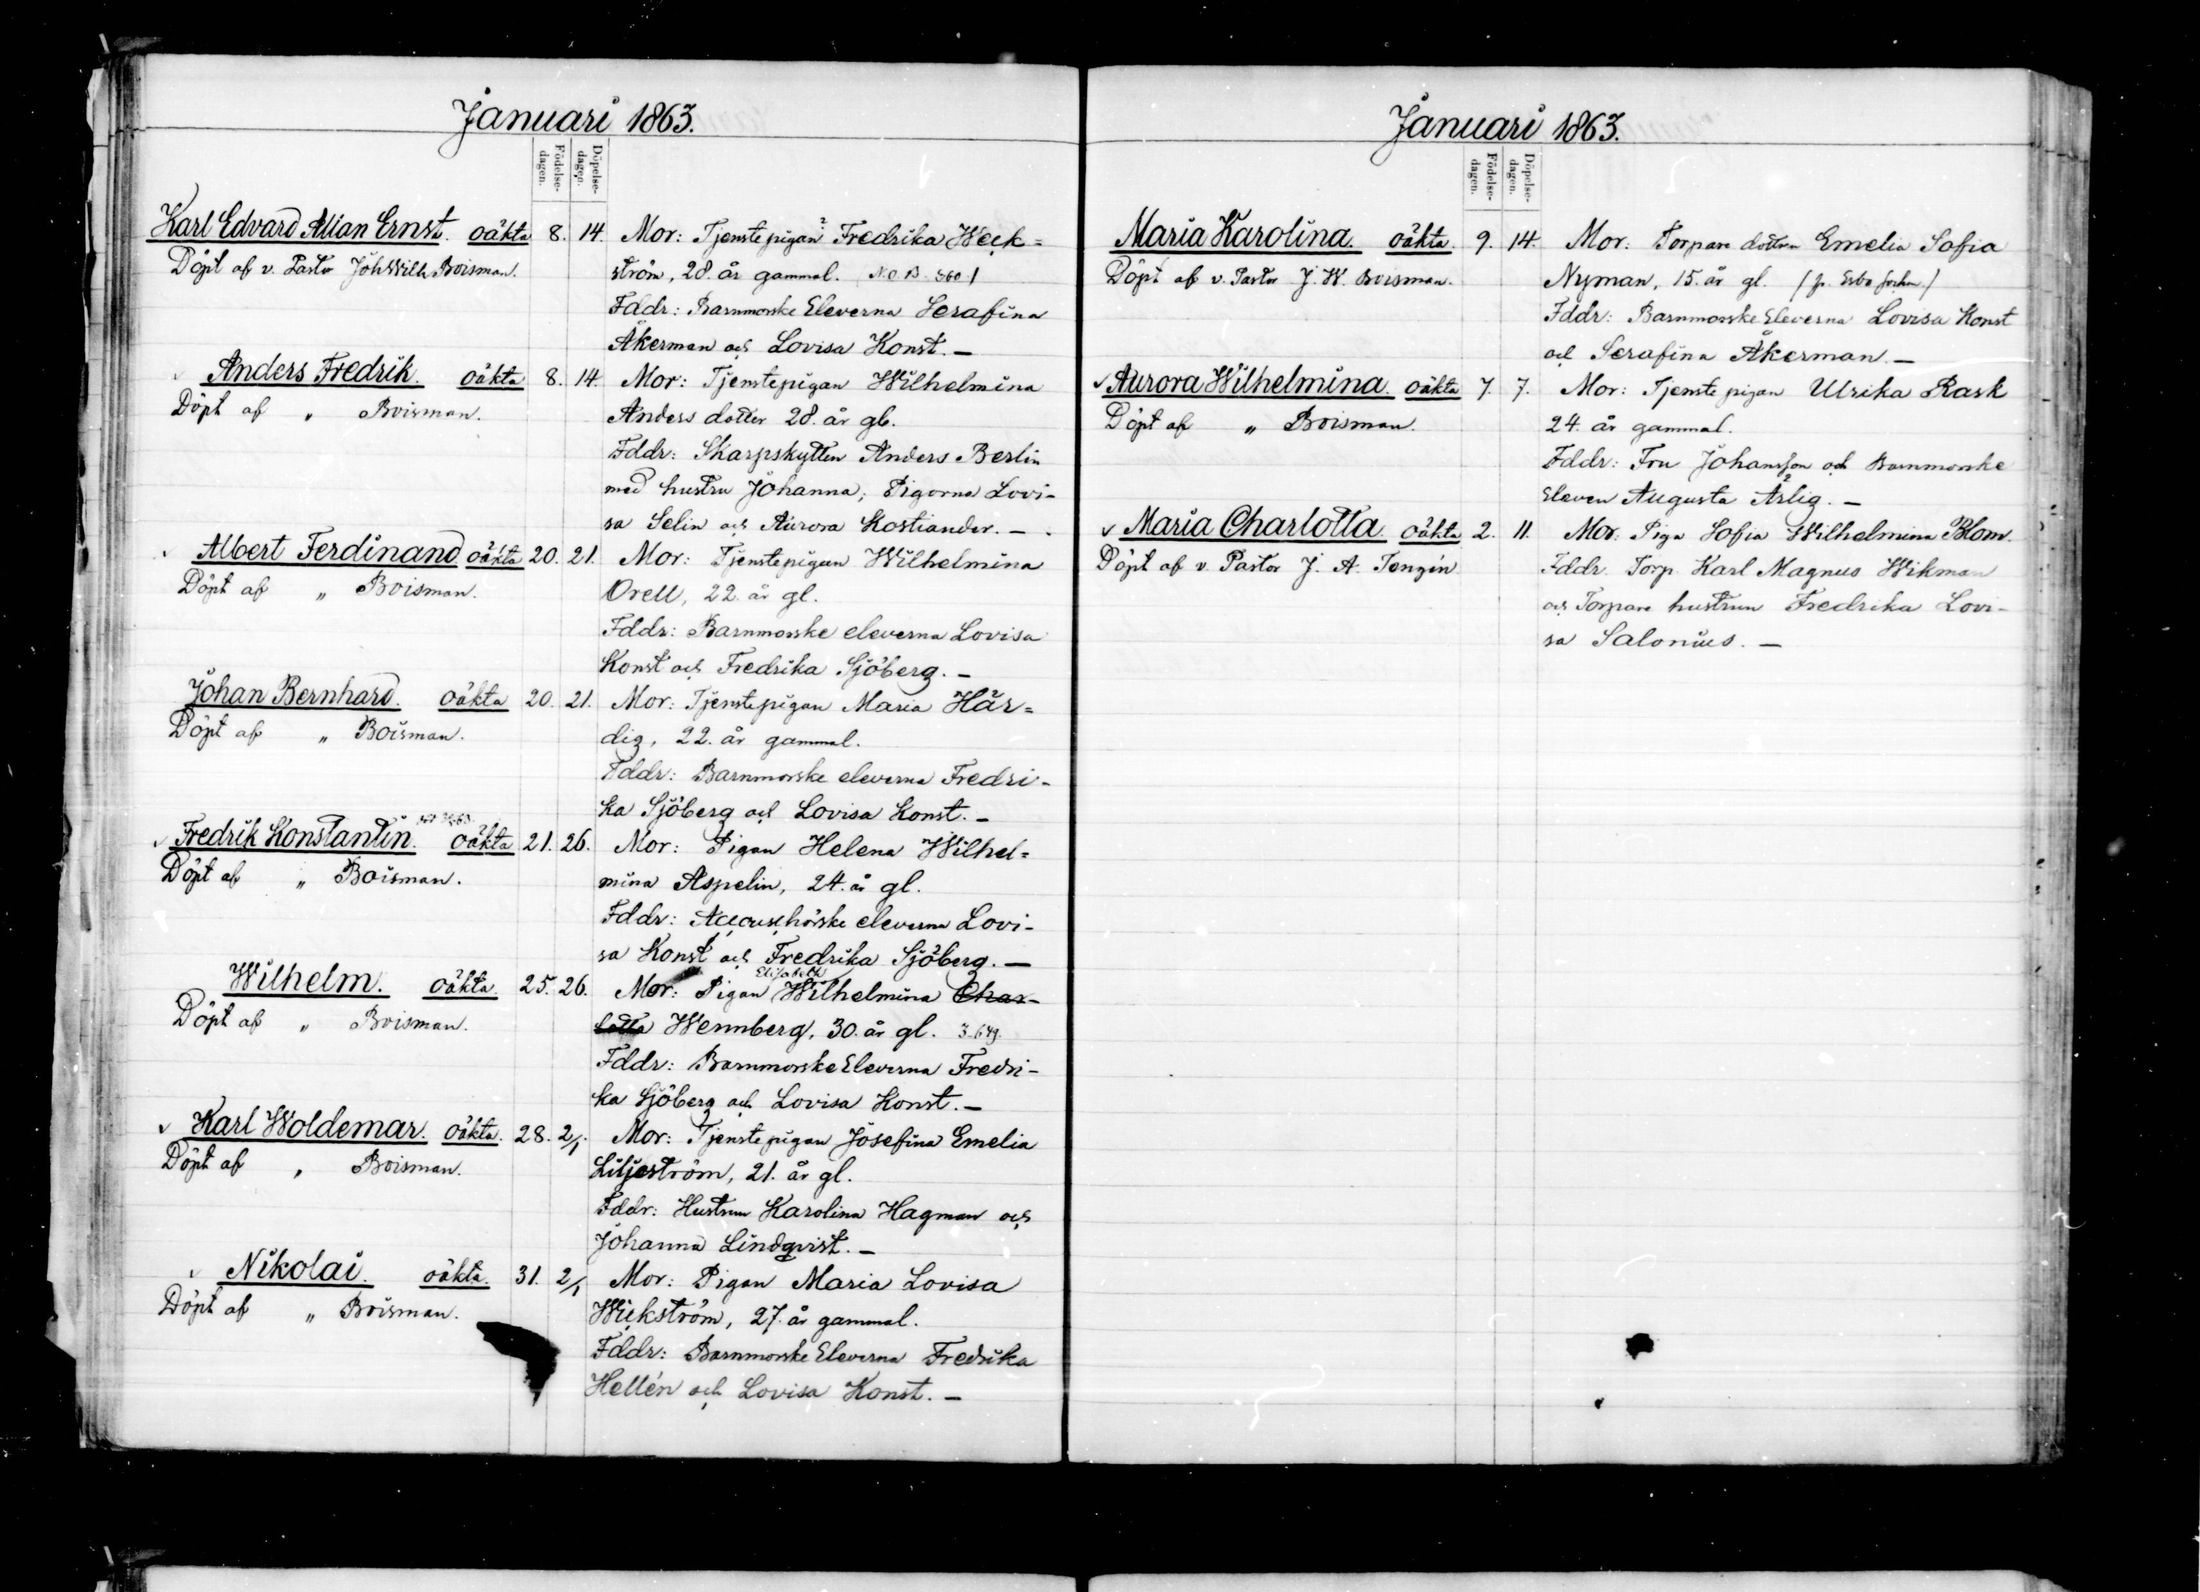 Januari 1863.
Födelse-dagen. Döpelse-dagen.
Karl Edvard Allian Ernst. oäkta 8. 14. Mor: Tjenstepigan Fredrika Weck=
Döpt af v. Pastor Joh Wilh. Boisman. ström, 28. år gammal. N.O.B. 360
Fddr: Barnmorske Eleverna Serafina
Åkerman och Lovisa Konst. –
Anders Fredrik. oäkta 8. 14. Mor: Tjenstepigan Wilhelmina
Döpt af „ Boisman. Anders dotter 28. år gl.
Fddr: Skarpskytten Anders Berlin
med hustru Johanna; Pigorna Lovi-
sa Selin och Aurora Kostiander. –
Albert Ferdinand oäkta 20. 21. Mor: Tjenstepigan Wilhelmina
Döpt af „ Boisman. Orell, 22. år gl.
Fddr: Barnmorske eleverna Lovisa
Konst och Fredrika Sjöberg. –
Johan Bernhard. oäkta 20. 21. Mor: Tjenstepigan Maria Här=
Döpt af „ Boisman. dig, 22. år gammal.
Fddr: Barnmorske eleverna Fredri-
ka Sjöberg och Lovisa Konst. –
Fredrik Konstantin. oäkta 21. 26. Mor: Pigan Helena Wilhel=
Döpt af „ Boisman. mina Aspelin, 24. år gl.
Fddr: Accouschörske eleverna Lovi-
sa Konst och Fredrika Sjöberg. –
Elisabeth
Wilhelm. oäkta. 25. 26. Mor: Pigan Wilhelmina Char-
Döpt af „ Boisman. lotta Wennberg, 30. år gl. 3.649.
Fddr: Barnmorske Eleverna Fredri-
ka Sjöberg och Lovisa Konst. –
Karl Woldemar. oäkta. 28. 2/1. Mor: Tjenstepigan Josefina Emelia
Döpt af „ Boisman. Liljeström, 21. år gl.
Fddr: Hustrun Karolina Hagman och
Johanna Lindqvist. –
Nikolai. oäkta. 31. 2/1 Mor: Pigan Maria Lovisa
Döpt af „ Boisman. Wickström, 27. år gammal.
Fddr: Barnmorske Eleverna Fredrika
Hellén och Lovisa Konst. –
Januari 1863.
Födelse-dagen. Döpelse-dagen.
Maria Karolina. oäkta. 9. 14. Mor: Torpare dottren Emelia Sofia
Döpt af v. Pastor J. W. Boisman. Nyman, 15. år gl. (fr. Esbo socken)
Fddr: Barnmorske Eleverna Lovisa Konst
och Serafina Åkerman. –
Aurora Wilhelmina. oäkta 7. 7. Mor: Tjenste pigan Ulrika Rask
Döpt af „ Boisman. 24. år gammal.
Fddr: Fru Johansson och Barnmorske
Eleven Augusta Ärlig. –
Maria Charlotta. oäkta 2. 11. Mor: Piga Sofia Wilhelmina Blom.
Döpt af v. Pastor J. A. Tengén Fddr. Torp. Karl Magnus Wikman
och Torpare hustrun Fredrika Lovi-
sa Salonius. –